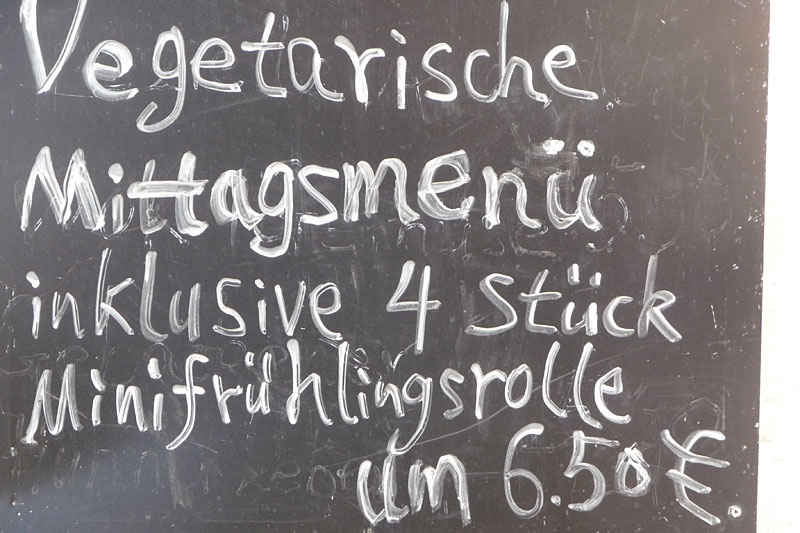 Vegetarische
Mittagsmenü
inklusive 4 Stück
Minifrühlingsrolle
um 6.50 €.